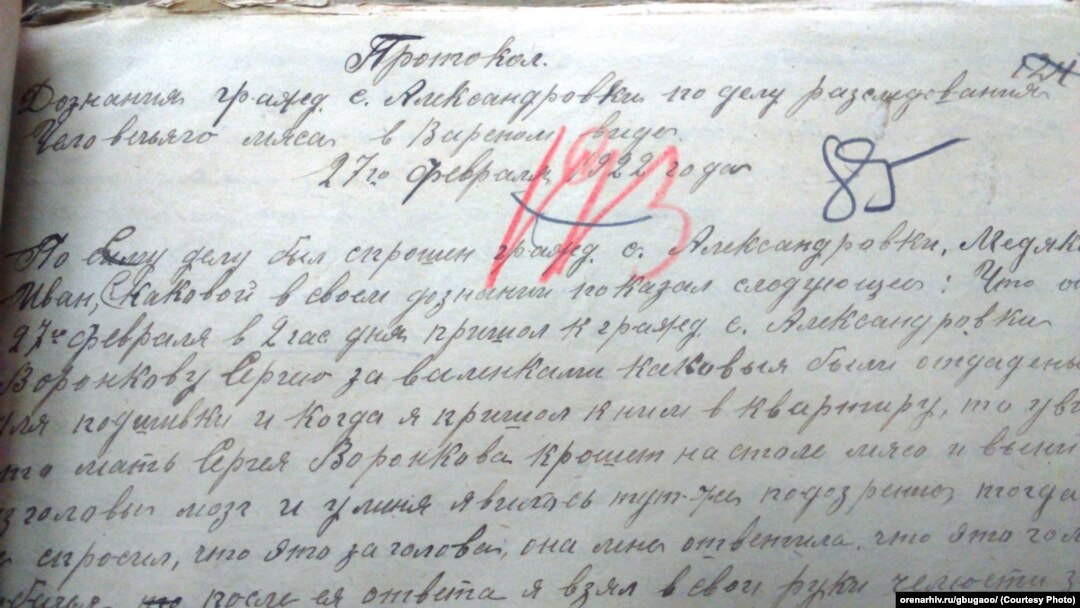 Протокол.
124
Дознания гражд. с. Александровки по делу разследования
Человечьяго мяса в Вареном виде
27го февраля 1922 года
193
85
По сему делу был спрошен гражд. с. Александровки, Медяк
Иван, Каковой в своем дознании показал следующее: Что
27го февраля в 2 час дня пришол к гражд. с. Александровки
Воронкову Сергию за валенками каковыя были отдадены
для подшивки и когда я пришол к ним в квартиру, то уви
что мать Сергея Воронкова крошет на столе мясо и выни
из головы мозг и у миня явилось тут-же подозрение тогда
я спросил, что это за голова, она мне ответила, что это гол
после ея ответа я взял в свои руки челюсти
orenarhiv.ru/gbugaoo/ (Courtesy Photo)